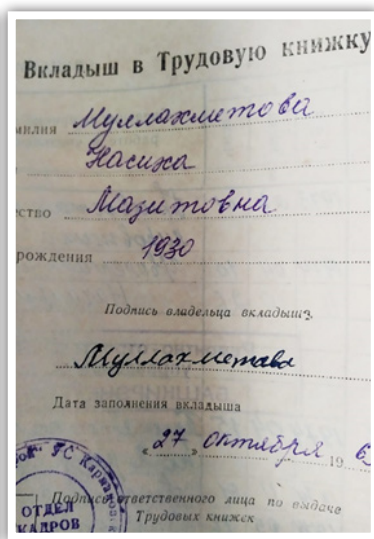 Вкладыш в Трудовую книжку
милия Муллахметова
Насиха
ество Мазитовна
рождения 1930
Подпись владельца вкладыша
Муллахметова
Дата заполнения вкладыша
« 27 октября 19 6
Подпись ответственного лица по выдаче
Трудовых книжек
ОТДЕЛ
КАДРОВ